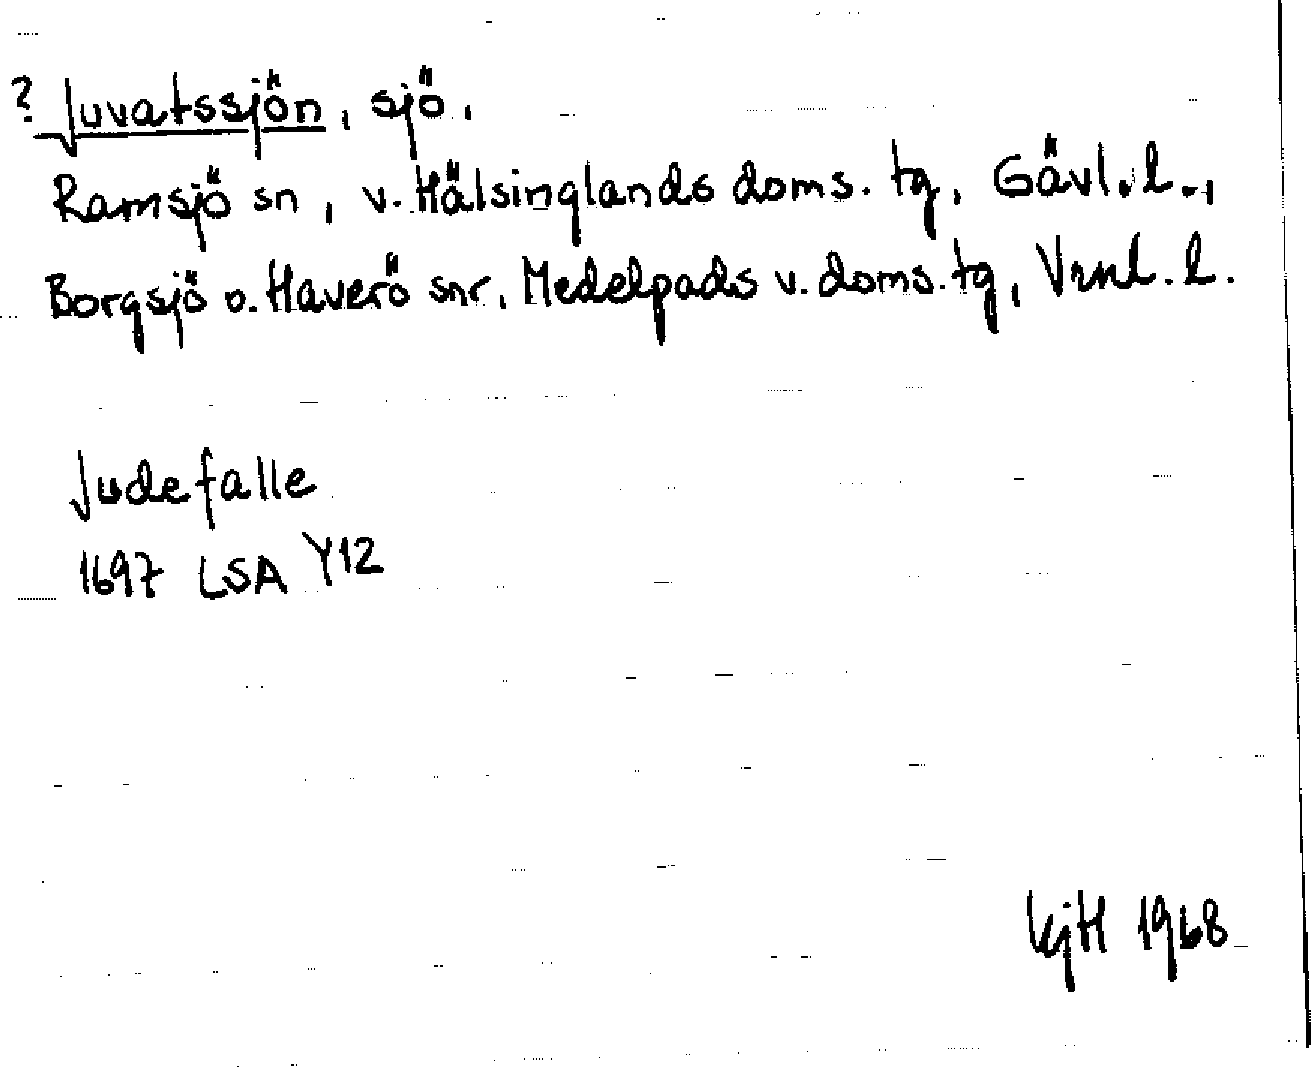 ? Juvatssjön, sjö.
Ramsjö sn, v. Hälsinglands doms. tg, Gävl. l.,
Borgsjö o. Haverö snr, Medelpads v. doms. tg, Vrnl. l.
Judefalle
1697 LSA Y12
KjH 1968